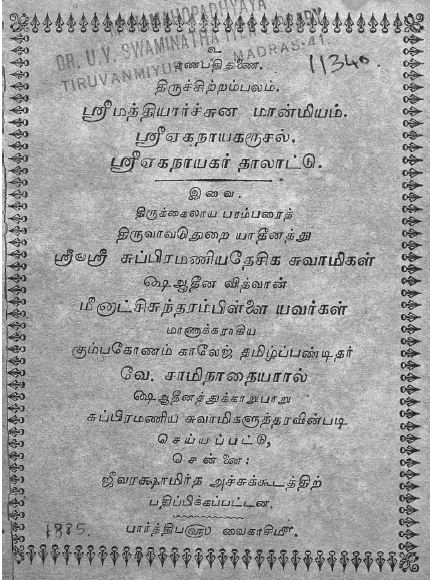 MAHAMAHOPADHYAYA
DR. U.V. SWAMINATHA IYER LIBRARY
TIRUVANMIYUR MADRAS-41.
11340.
உ
கணபதிதுணை.
திருச்சிற்றம்பலம்.
ஸ்ரீமத்தியார்ச்சுன மான்மியம்.
ஸ்ரீஏகநாயகரூசல்.
ஸ்ரீஏகநாயகர் தாலாட்டு.
இவை.
திருக்கைலாய பரம்பரைத்
திருவாவடுதுறை யாதீனத்து
ஸ்ரீலஸ்ரீ சுப்பிரமணியதேசிக சுவாமிகள்
ஷெ ஆதீன வித்வான்
மீனாட்சிசுந்தரம்பிள்ளை யவர்கள்
மாணாக்கராகிய
கும்பகோணம் காலேஜ் தமிழ்ப்பண்டிதர்
வே. சாமிநாதையரால்
ஷெ ஆதீனத்துக்காறுபாறு
சுப்பிரமணிய சுவாமிகளுத்தரவின்படி
செய்யப்பட்டு,
சென்னை:
ஜீவரக்ஷாமிர்த அச்சுக்கூடத்திற்
பதிப்பிக்கப்பட்டன.
பார்த்திப௵ வைகாசி௴.
1885.